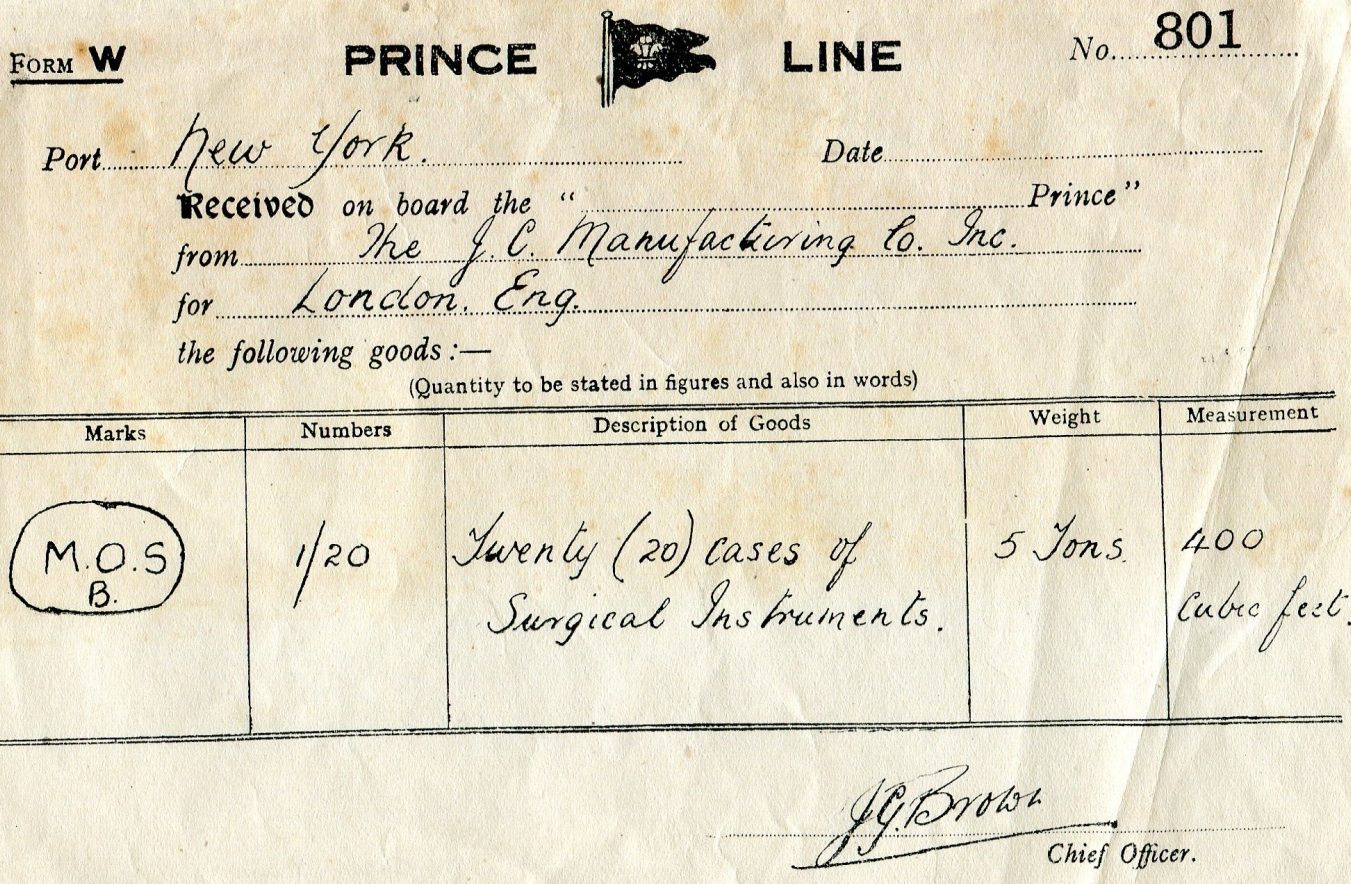 FORM W PRINCE LINE No. 801
Port New York. Date
Received on board the " Prince"
from The J. C. Manufacturing Co. Inc.
for London. Eng.
the following goods :—
(Quantity to be stated in figures and also in words)
Marks Numbers Description of Goods Weight Measurement
M.O.S 1/20 Twenty (20) cases of 5 Tons. 400
B. Surgical Instruments. Cubic feet.
J.G. Brown
Chief Officer.